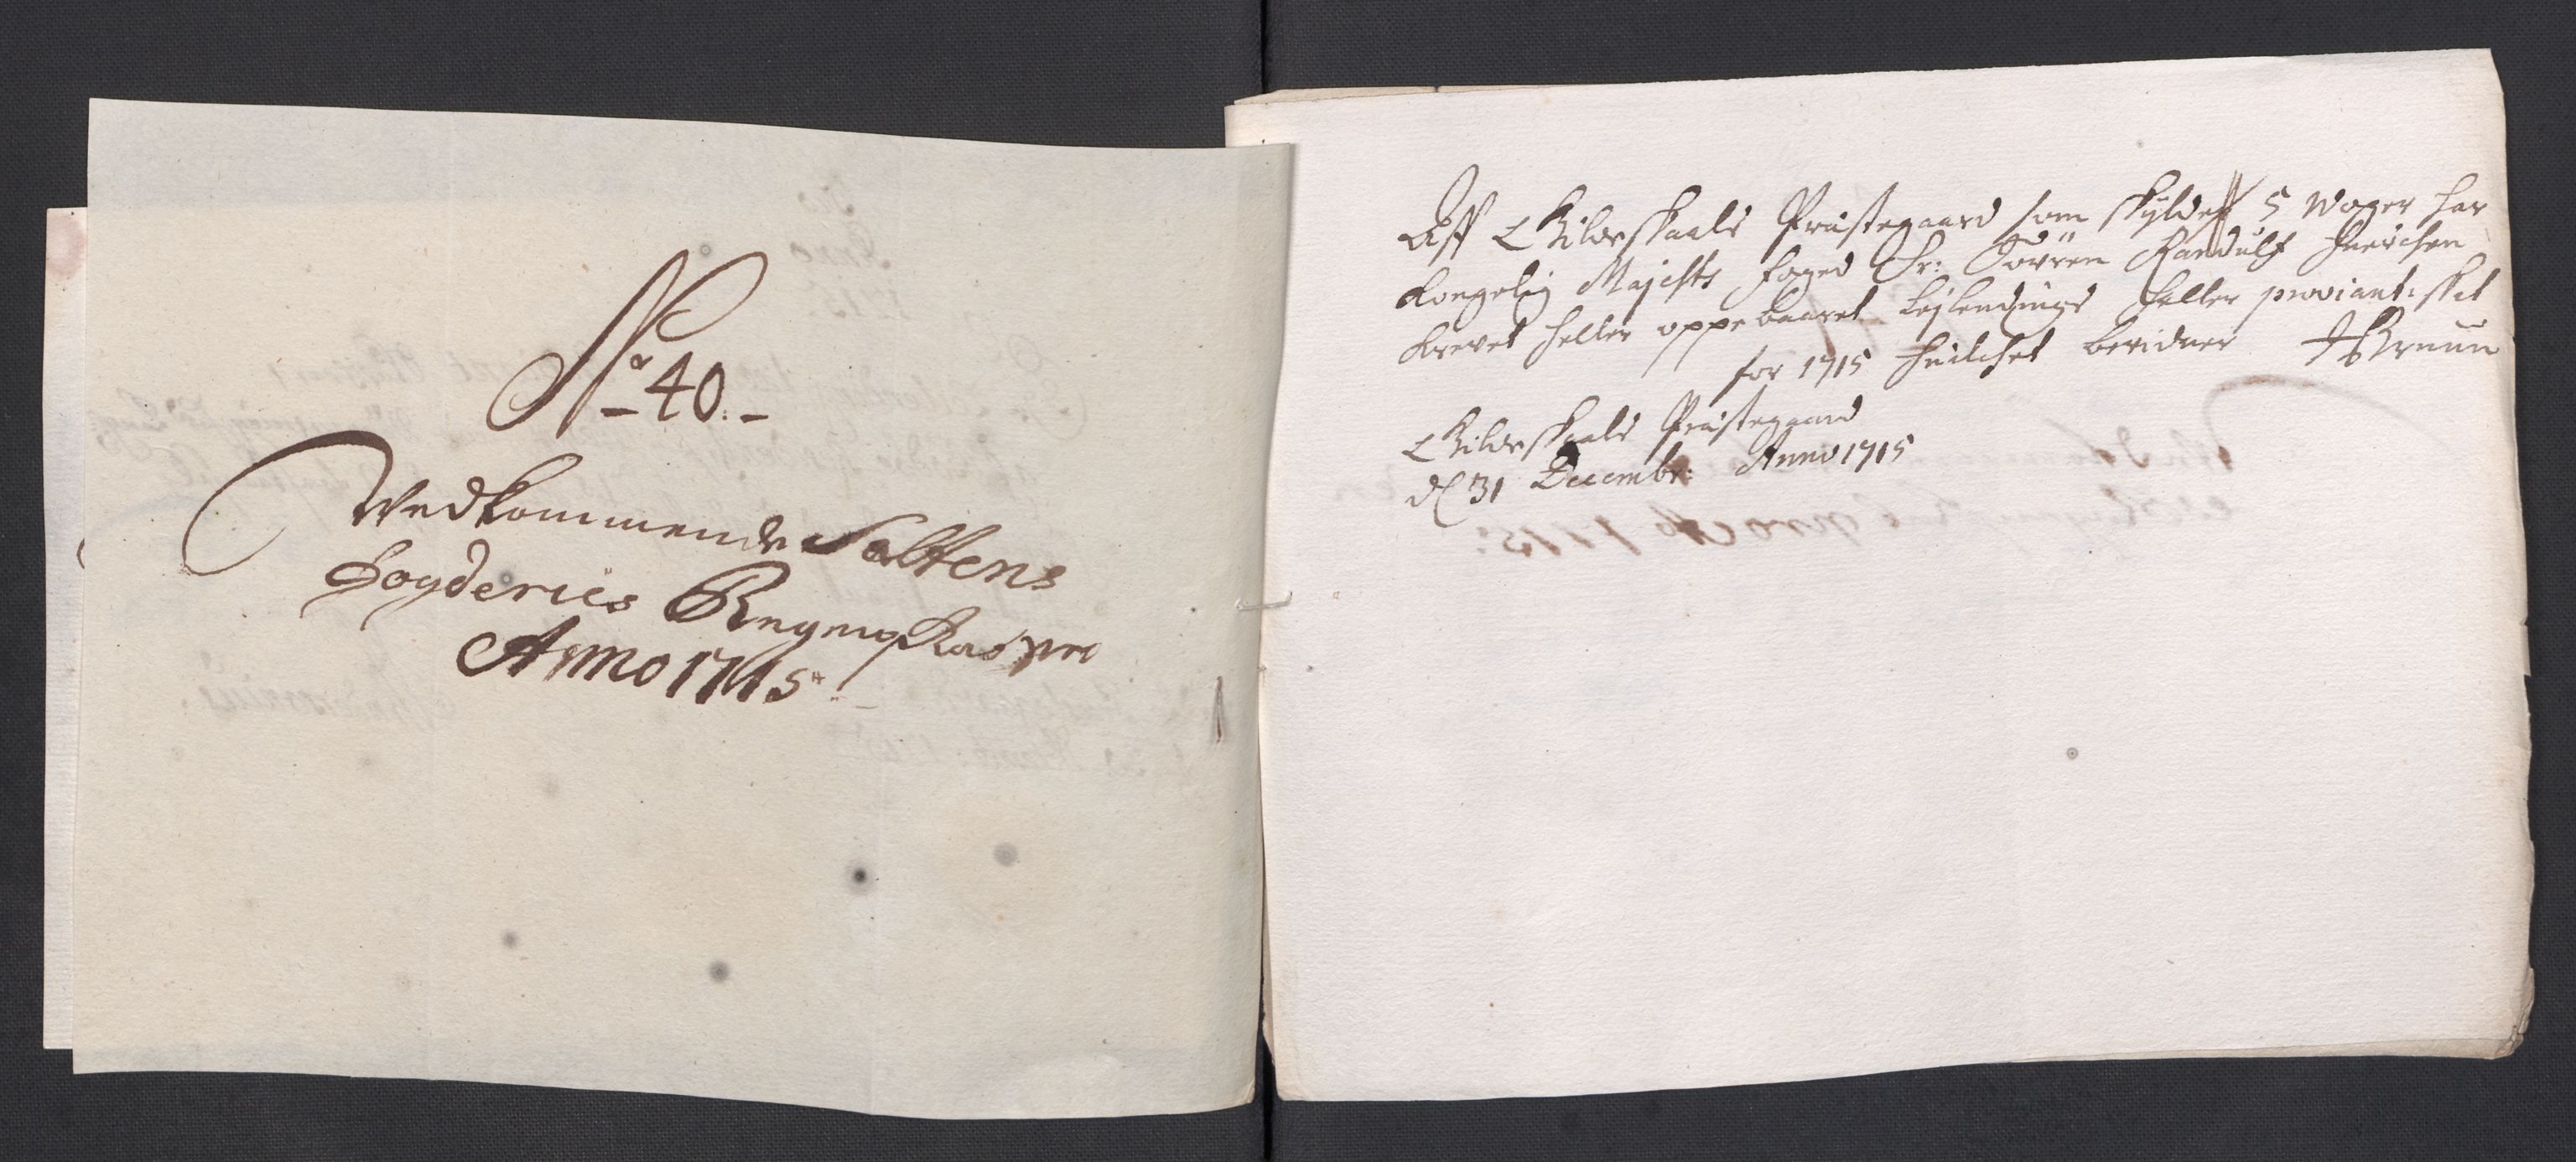 No 40.
Vedkommende Saltens
Fogderies Regnskab pro
Anno 1715.
Aff Gilderskaals Præstegaard som skylder 5 Woger har
Kongelig Majesttz Foged Sr: Søvren Randulf hverchen
krevet heller oppebaaret Lejlendings heller proviant-skat
for 1715 huilchet bevidner JBruun
Gilderskaals Præstegaard
dl 31 Decembr: Anno 1715